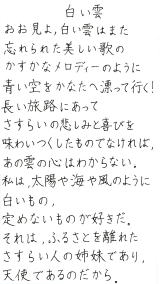 白い雲
おお見よ,白い雲はまた
忘れられた美しい歌の
かすかなメロディーのように
青い空をかなたへ漂って行く!
長い旅路にあって
さすらいの悲しみと喜びを
味わいつくしたものでなければ,
あの雲の心はわからない.
私は,太陽や海や風のように
白いもの,
定めないものが好きだ.
それは,ふるさとを離れた
さすらい人の姉妹であり,
天使であるのだから.